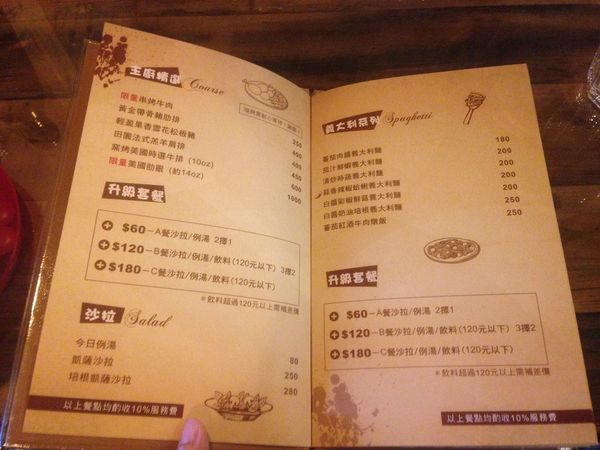 主廚精選 Coarse
限量串烤牛肉 250
黃金帶骨豬肋排 400
輕盈果香雪花松板豬 400
田園法式羔羊肩排 450
窯烤美國特選牛排 (10oz) 600
限量美國肋眼 (約14oz) 1000
升級套餐
$60-A餐沙拉/例湯 2擇1
$120-B餐沙拉/例湯/飲料(120元以下) 3擇2
$180-C餐沙拉/例湯/飲料(120元以下)
*飲料超過120元以上需補差價
沙拉 Salad
今日例湯 80
凱薩沙拉 250
培根凱薩沙拉 280
以上餐點均酌收10%服務費
義大利系列 Spaghetti
蕃茄肉醬義大利麵 180
茄汁鮮蝦義大利麵 200
清炒時蔬義大利麵 200
蒜香辣椒蛤蜊義大利麵 200
白醬彩椒鮮菇義大利麵 200
白醬奶油培根義大利麵 250
蕃茄紅酒牛肉燉飯 250
升級套餐
$60-A餐沙拉/例湯 2擇1
$120-B餐沙拉/例湯/飲料(120元以下) 3擇2
$180-C餐沙拉/例湯/飲料(120元以下)
*飲料超過120元以上需補差價
以上餐點均酌收10%服務費